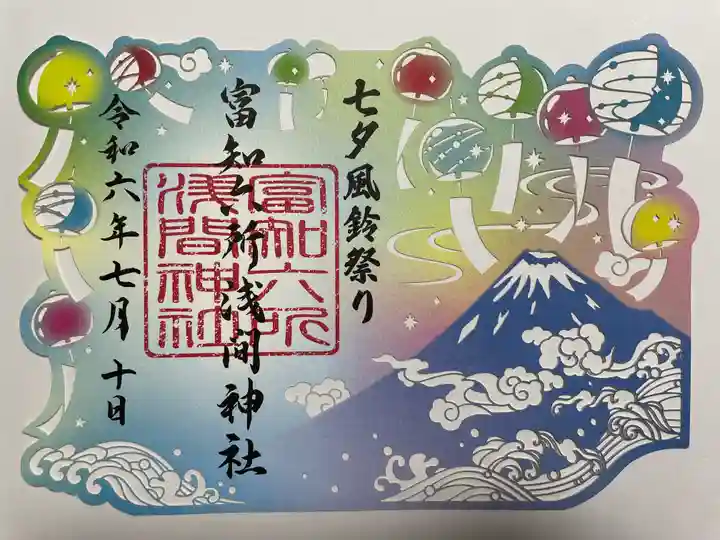 七夕風鈴祭り
富知六所浅間神社
富知六所
浅間神社
令和六年七月十日